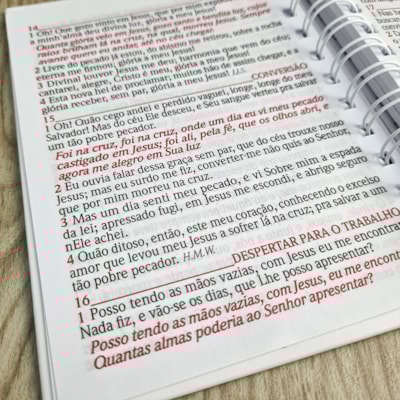 14
1 Oh! Que gozo sinto em Jesus, que por mim expirou
minh'alma deu divina luz, glória a meu Jesus!
Quanta glória em Jesus, santo e bendita luz, cujos
raios brilham lá na cruz, na qual, morreu Jesus. Sempre
avante quero eu andar, até no céu chegar.
2 Livre de pecado já estou, glória a meu Jesus!
eterna me firmou, do abismo me retirou, sobre a rocha
3 Divinal louvor hei de dar; harmonia que vem do céu;
cantarei, alegre, Cristo é meu, glória a meu Jesus!
4 Esta nova hei de proclamar, muitos hão de assim chegar, e a
glória receber, sem par, glória a meu Jesus! J.S.
15 CONVERSÃO
1 Oh! Quão cego andei e perdido vaguei, longe, longe do meu
Salvador! Mas do céu Ele desceu, e Seu sangue verteu pra salvar
um tão pobre pecador.
Foi na cruz, foi na cruz, onde um dia eu vi meu pecado
castigado em Jesus; foi ali, pela fé, que os olhos abri, e
agora me alegro em Sua luz
2 Eu ouvia falar dessa graça sem par, que do céu trouxe nosso
Jesus; mas eu surdo me fiz, converter-me não quis ao Senhor,
que por mim morreu na cruz.
3 Mas um dia senti meu pecado, e vi Sobre mim a espada
da lei; apressado fugi, em Jesus me escondi, e abrigo seguro
nEle achei.
4 Quão ditoso, então, este meu coração, conhecendo o excelso
amor que levou meu Jesus a sofrer lá na cruz; pra salvar a um
tão pobre pecador. H.M.W.
16 DESPERTAR PARA O TRABALHO
1 Posso tendo as mãos vazias, com Jesus eu me encontrar
Nada fiz, e vão-se os dias, que Lhe posso apresentar?
Posso tendo as mãos vazias, com Jesus, eu me encont
Quantas almas poderia ao Senhor apresentar?